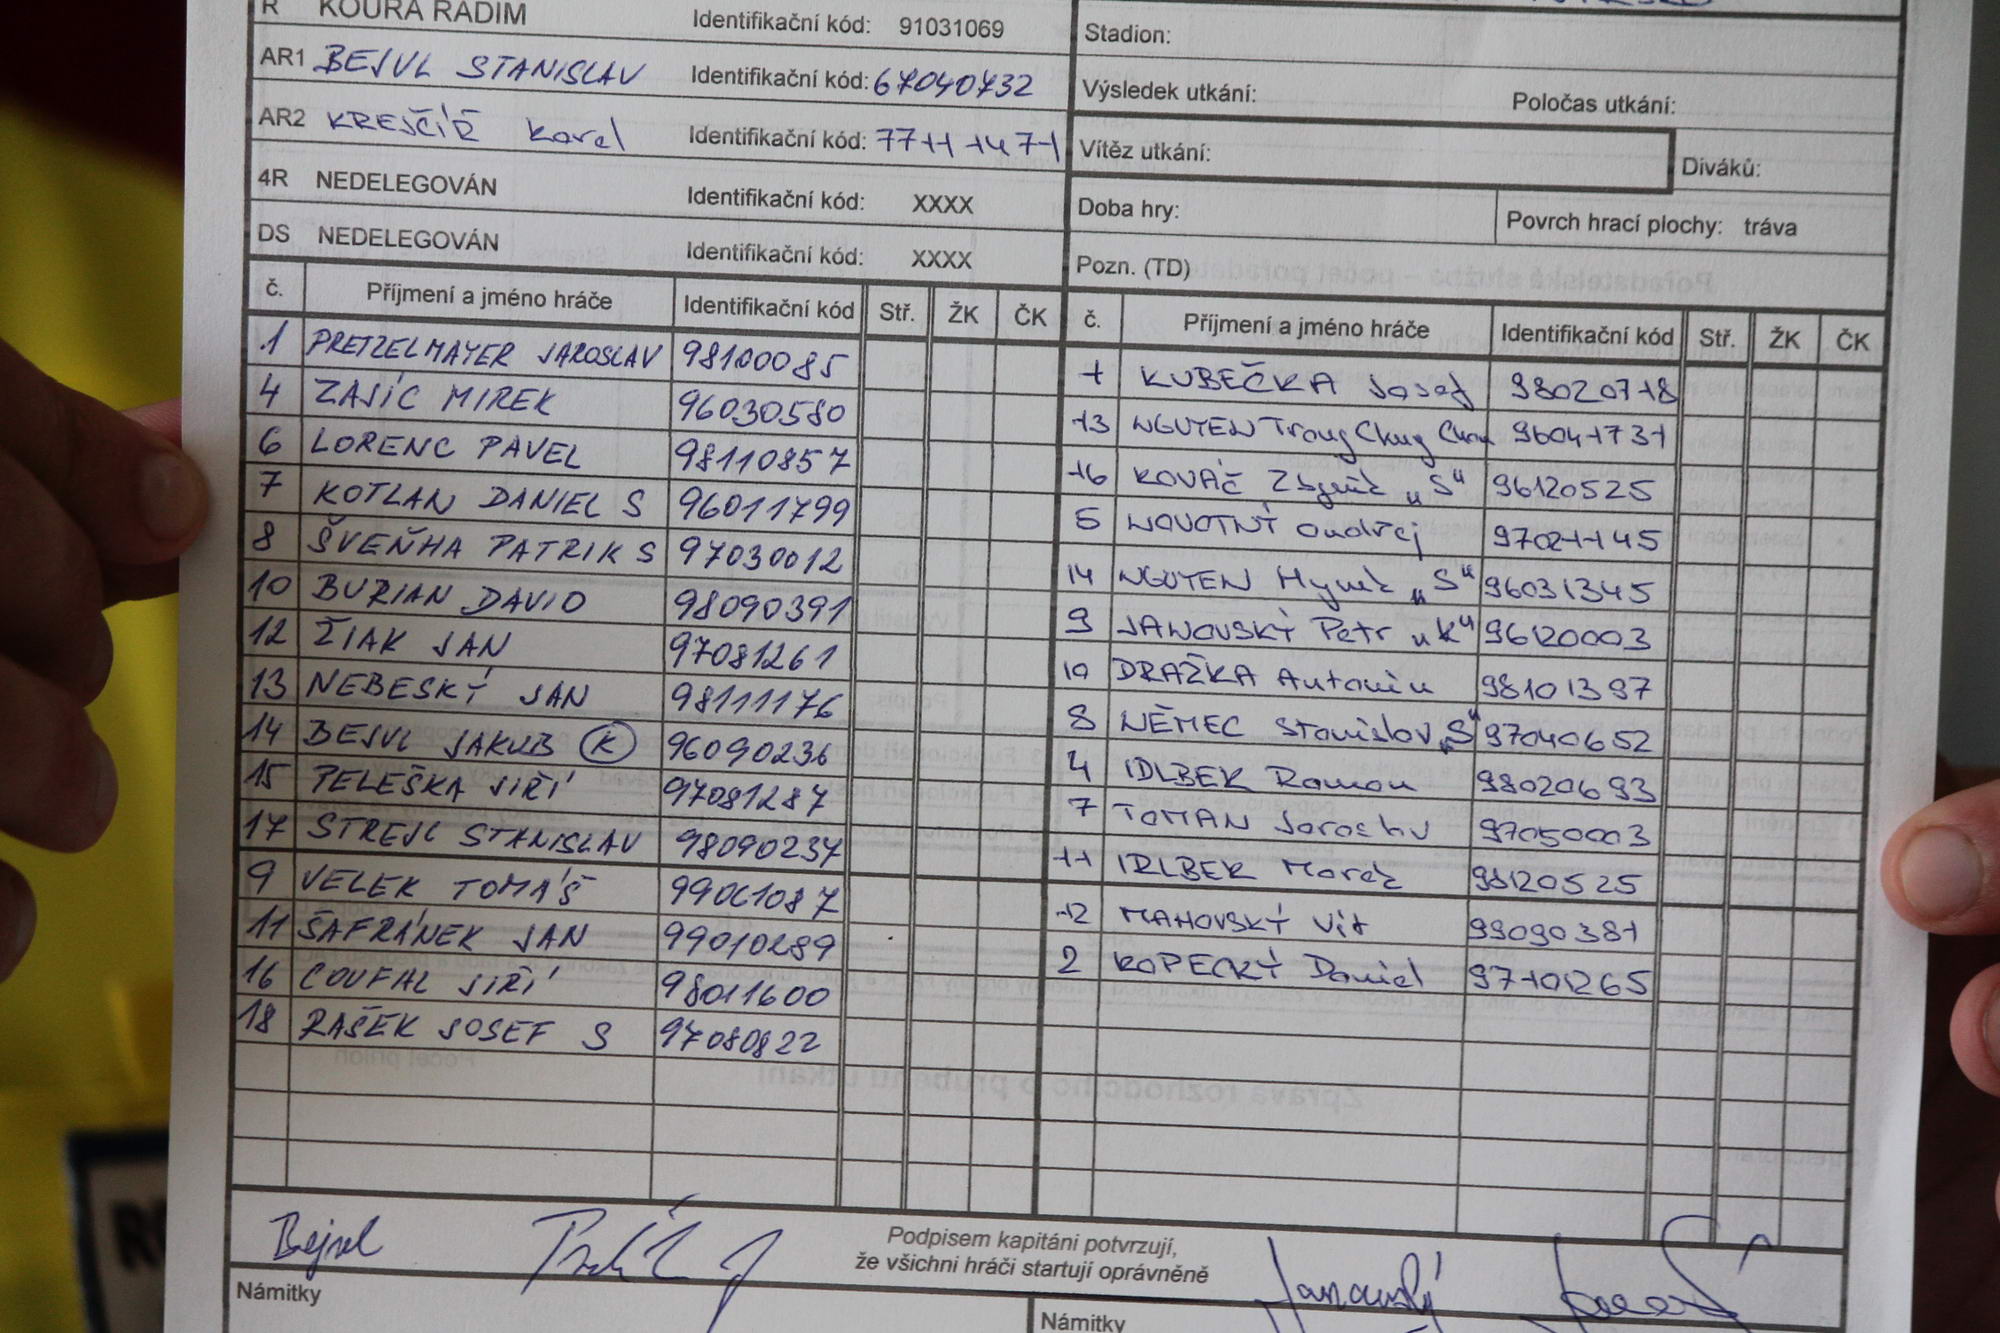 R KOURA RADIM Identifikační kód: 91031069
Stadion:
AR1 BEJVL STANISLAV Identifikační kód: 67040732
Výsledek utkání: Poločas utkání:
AR2 KREJČÍŘ Karel Identifikační kód: 77111471
Vítěz utkání: Diváků:
4R NEDELEGOVÁN Identifikační kód: XXXX
Doba hry: Povrch hrací plochy: tráva
DS NEDELEGOVÁN Identifikační kód: XXXX
Pozn. (TD)
č. Příjmení a jméno hráče Identifikační kód Stř. ŽK ČK
1 PRETZELMAYER JAROSLAV 98100085
4 ZAJÍC MIREK 96030580
6 LORENC PAVEL 98110857
7 KOTLAN DANIEL S 96011799
8 ŠVEŇHA PATRIK S 97030012
10 BURIAN DAVID 98090391
12 ŽIAK JAN 97081261
13 NEBESKÝ JAN 98111176
14 BEJVL JAKUB K 96090236
15 PELEŠKA JIŘÍ 97081287
17 STREJC STANISLAV 98090237
9 VELEK TOMÁŠ 99061087
11 ŠAFRÁNEK JAN 99010289
16 COUFAL JIŘÍ 98011600
18 RAŠEK JOSEF S 97080822
č. Příjmení a jméno hráče Identifikační kód Stř. ŽK ČK
1 KUBEČKA Josef 98020718
13 NGUYEN 96041731
16 KOVÁČ Zbyněk „S“ 96120525
5 NOVOTNÝ Ondřej 97021145
14 NGUYEN Hynek „S“ 96031345
9 JANOVSKÝ Petr „K“ 96120003
10 DRAŽKA Antonín 98101397
8 NĚMEC Stanislav „S“ 97040652
4 IDLBEK Roman 98020693
7 TOMAN Jaroslav 97050003
11 IRLBEK Marek 98120525
12 MAHOVSKÝ Vít 99090381
2 KOPECKÝ Daniel 97101265
Bejvl
Podpisem kapitáni potvrzují,
že všichni hráči startují oprávněně
Janovský
Námitky
Námitky